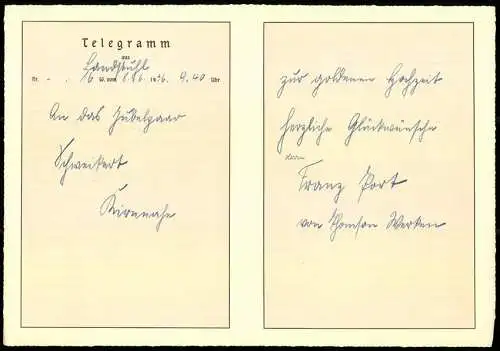 Telegramm
aus
Landstuhl
Nr. - . /6 W. vom 8.6. 1956. 9.40 Uhr
An das Jubelpaar
Schweikert
Kirnnahe
zur goldenen Hochzeit
herzliche Glückwünsche
Franz Port
von Thomson Werken